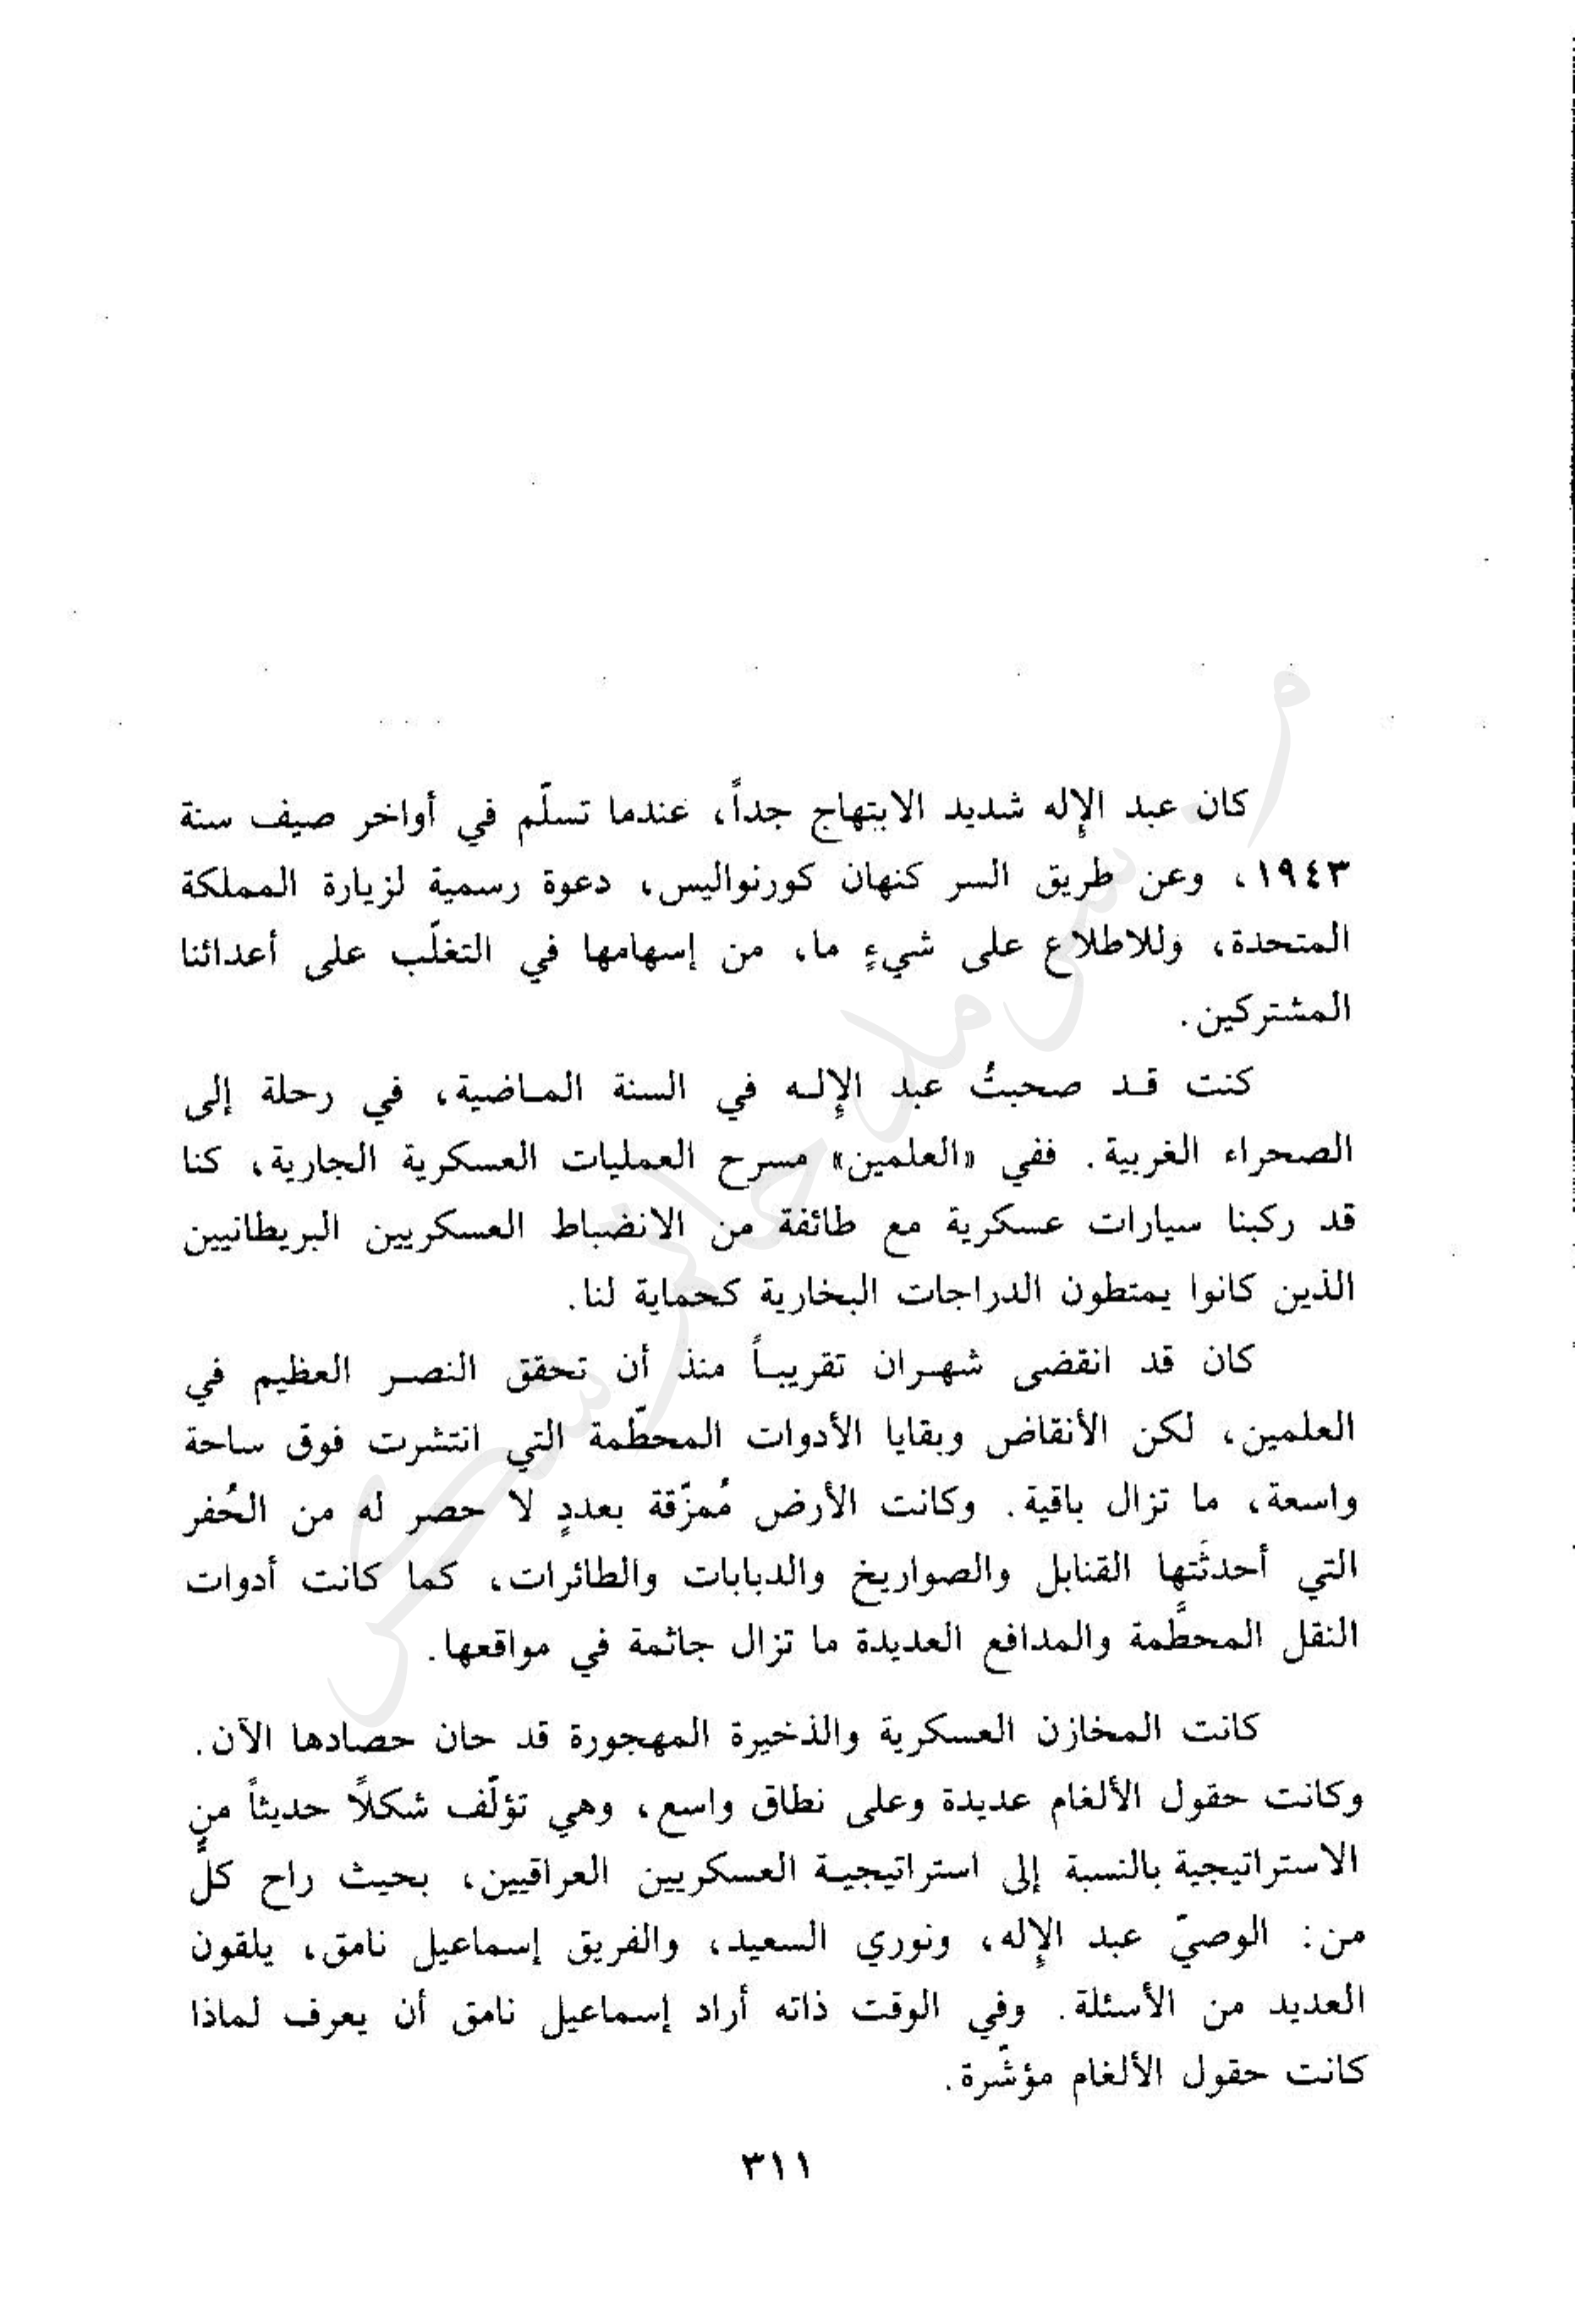 كان عبد الإله شديد الابتهاج جداً، عندما تسلّم في أواخر صيف سنة
١٩٤٣، وعن طريق السر كنهان كورنواليس، دعوة رسمية لزيارة المملكة
المتحدة، وللاطلاع على شيءٍ ما، من إسهامها في التغلّب على أعدائنا
المشتركين.
كنت قد صحبتُ عبد الإله في السنة الماضية، في رحلة إلى
الصحراء الغربية. ففي «العلمين» مسرح العمليات العسكرية الجارية، كنا
قد ركبنا سيارات عسكرية مع طائفة من الانضباط العسكريين البريطانيين
الذين كانوا يمتطون الدراجات البخارية كحماية لنا.
كان قد انقضى شهران تقريباً منذ أن تحقق النصر العظيم في
العلمين، لكن الأنقاض وبقايا الأدوات المحطّمة التي انتشرت فوق ساحة
واسعة، ما تزال باقية. وكانت الأرض مُمزّقة بعددٍ لا حصر له من الحُفر
التي أحدثَتها القنابل والصواريخ والدبابات والطائرات، كما كانت أدوات
النقل المحطّمة والمدافع العديدة ما تزال جاثمة في مواقعها.
كانت المخازن العسكرية والذخيرة المهجورة قد حان حصادها الآن.
وكانت حقول الألغام عديدة وعلى نطاق واسع، وهي تؤلّف شكلاً حديثاً من
الاستراتيجية بالنسبة إلى استراتيجية العسكريين العراقيين، بحيث راح كلٌّ
من: الوصيّ عبد الإله، ونوري السعيد، والفريق إسماعيل نامق، يلقون
العديد من الأسئلة. وفي الوقت ذاته أراد إسماعيل نامق أن يعرف لماذا
كانت حقول الألغام مؤشّرة.
٣١١